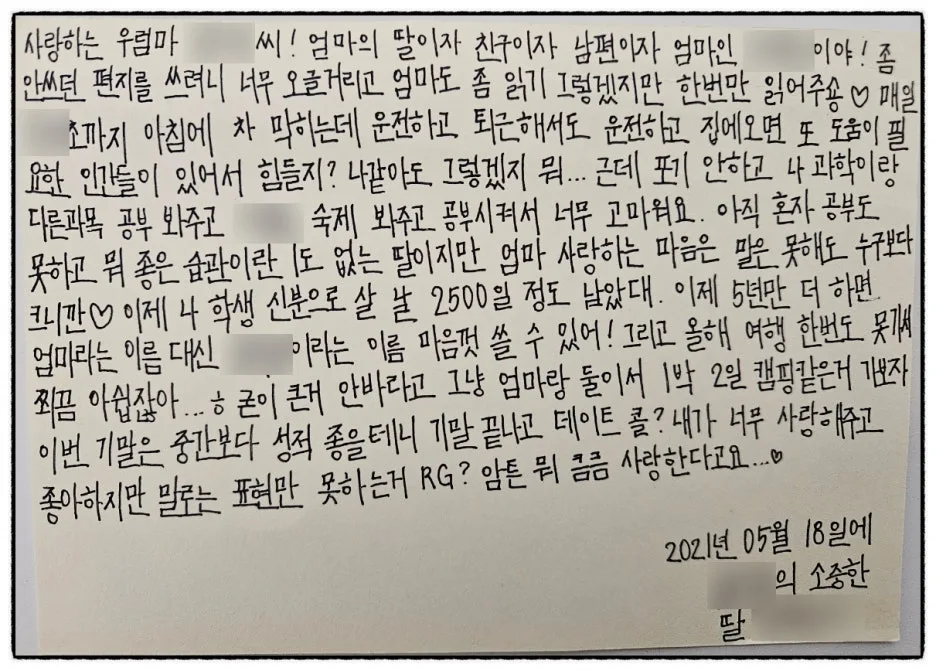 사랑하는 우렴마 씨! 엄마의 딸이자 친구이자 남편이자 엄마인 이야! 좀
안쓰던 편지를 쓰려니 너무 오글거리고 엄마도 좀 읽기 그렇겠지만 한번만 읽어주숑♡ 매일
초까지 아침에 차 막히는데 운전하고 퇴근해서도 운전하고 집에오면 또 도움이 필
요한 인간들이 있어서 힘들지? 나같아도 그렇겠지 뭐... 근데 포기 안하고 나 과학이랑
다른과목 공부 봐주고 숙제 봐주고 공부시켜서 너무 고마워요. 아직 혼자 공부도
못하고 뭐 좋은 습관이란 1도 없는 딸이지만 엄마 사랑하는 마음은 말은 못해도 누구보다
크니깐♡ 이제 나 학생 신분으로 살 날 2500일 정도 남았대. 이제 5년만 더 하면
엄마라는 이름 대신 이라는 이름 마음껏 쓸 수 있어! 그리고 올해 여행 한번도 못가서
쬐끔 아쉽잖아...ㅎ 굳이 큰거 안바라고 그냥 엄마랑 둘이서 1박 2일 캠핑같은거 가보자
이번 기말은 중간보다 성적 좋을테니 기말 끝나고 데이트 콜? 내가 너무 사랑해주고
좋아하지만 말로는 표현만 못하는거 RG? 암튼 뭐 큼큼 사랑한다고요...♡
2021년 05월 18일에
의 소중한
딸